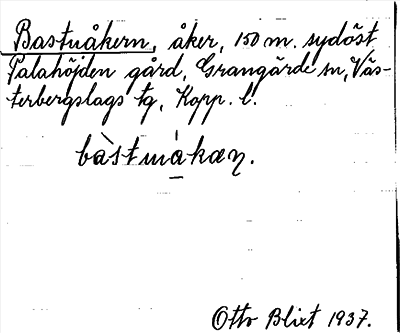 Bastuåkern, åker, 150 m. sydöst
Palahöjden gård, Grangärde sn, Väs-
terbergslags tg, Kopp. l.
bàstuåkæɳ.
Otto Blixt 1937.